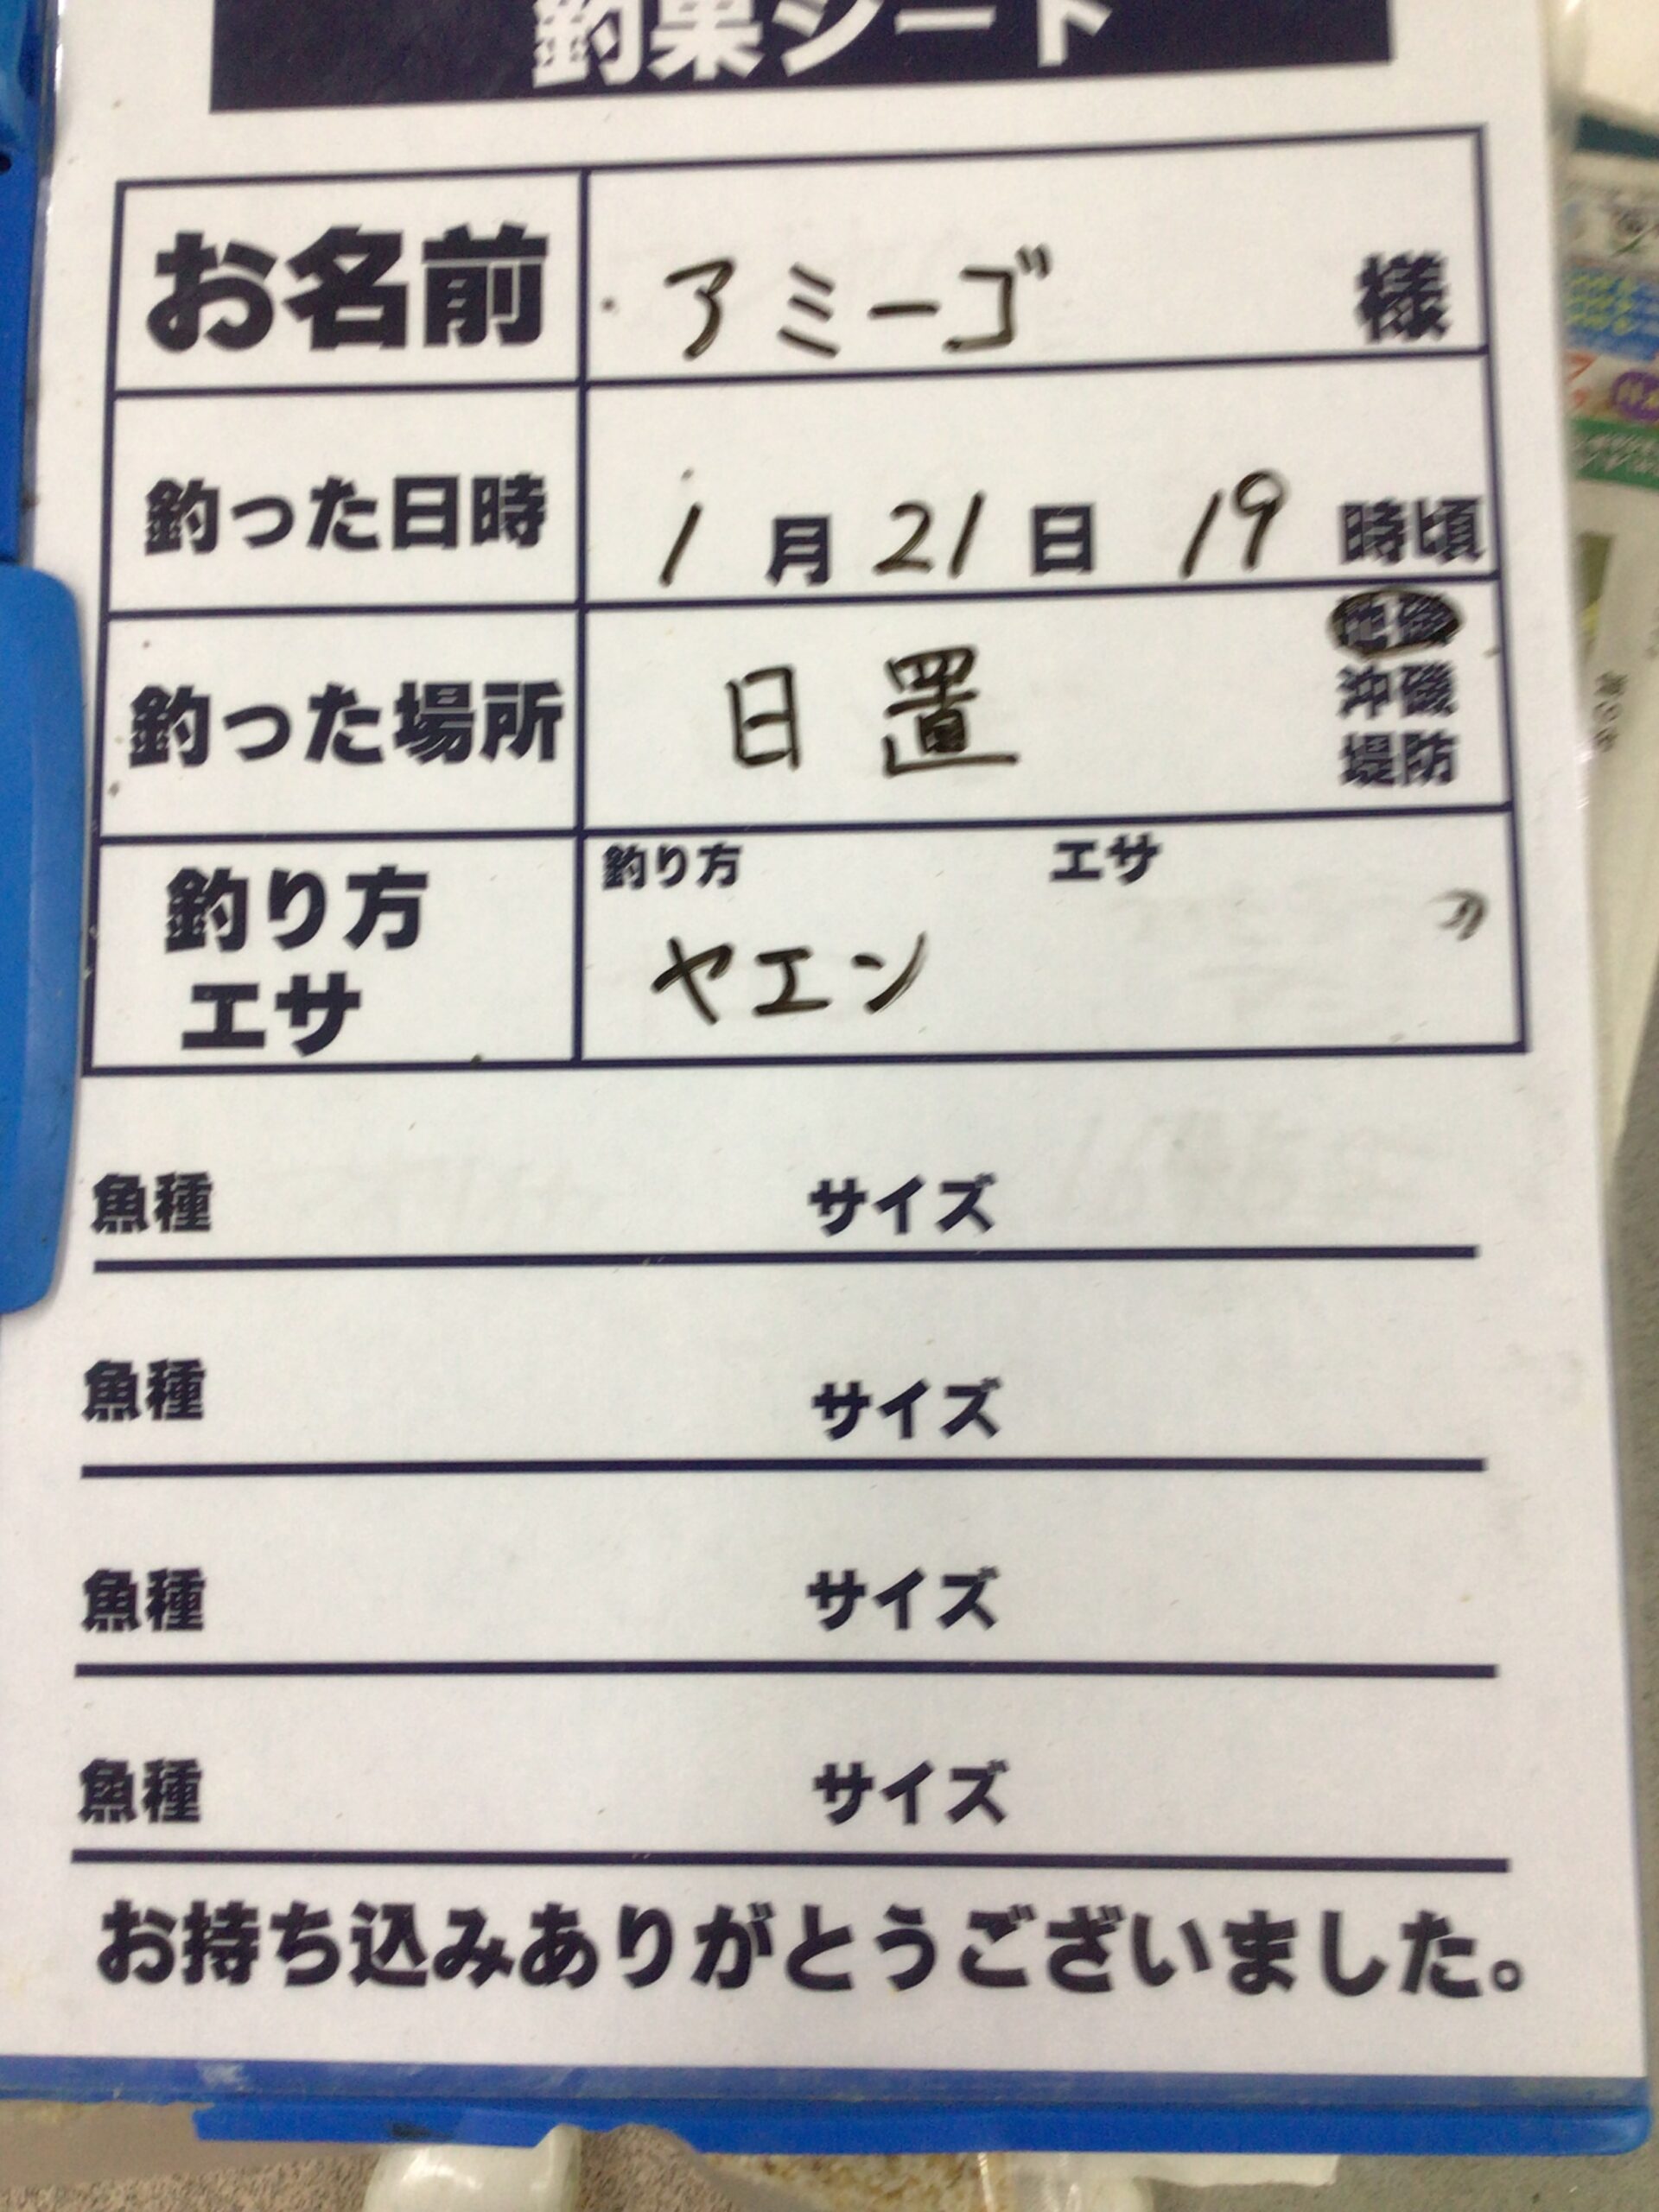 釣果シート
お名前 アミーゴ 様
釣った日時 1月21日 19時頃
釣った場所 日置 地磯
沖磯
堤防
釣り方 エサ
釣り方
エサ
ヤエン
魚種 サイズ
魚種 サイズ
魚種 サイズ
魚種 サイズ
お持ち込みありがとうございました。